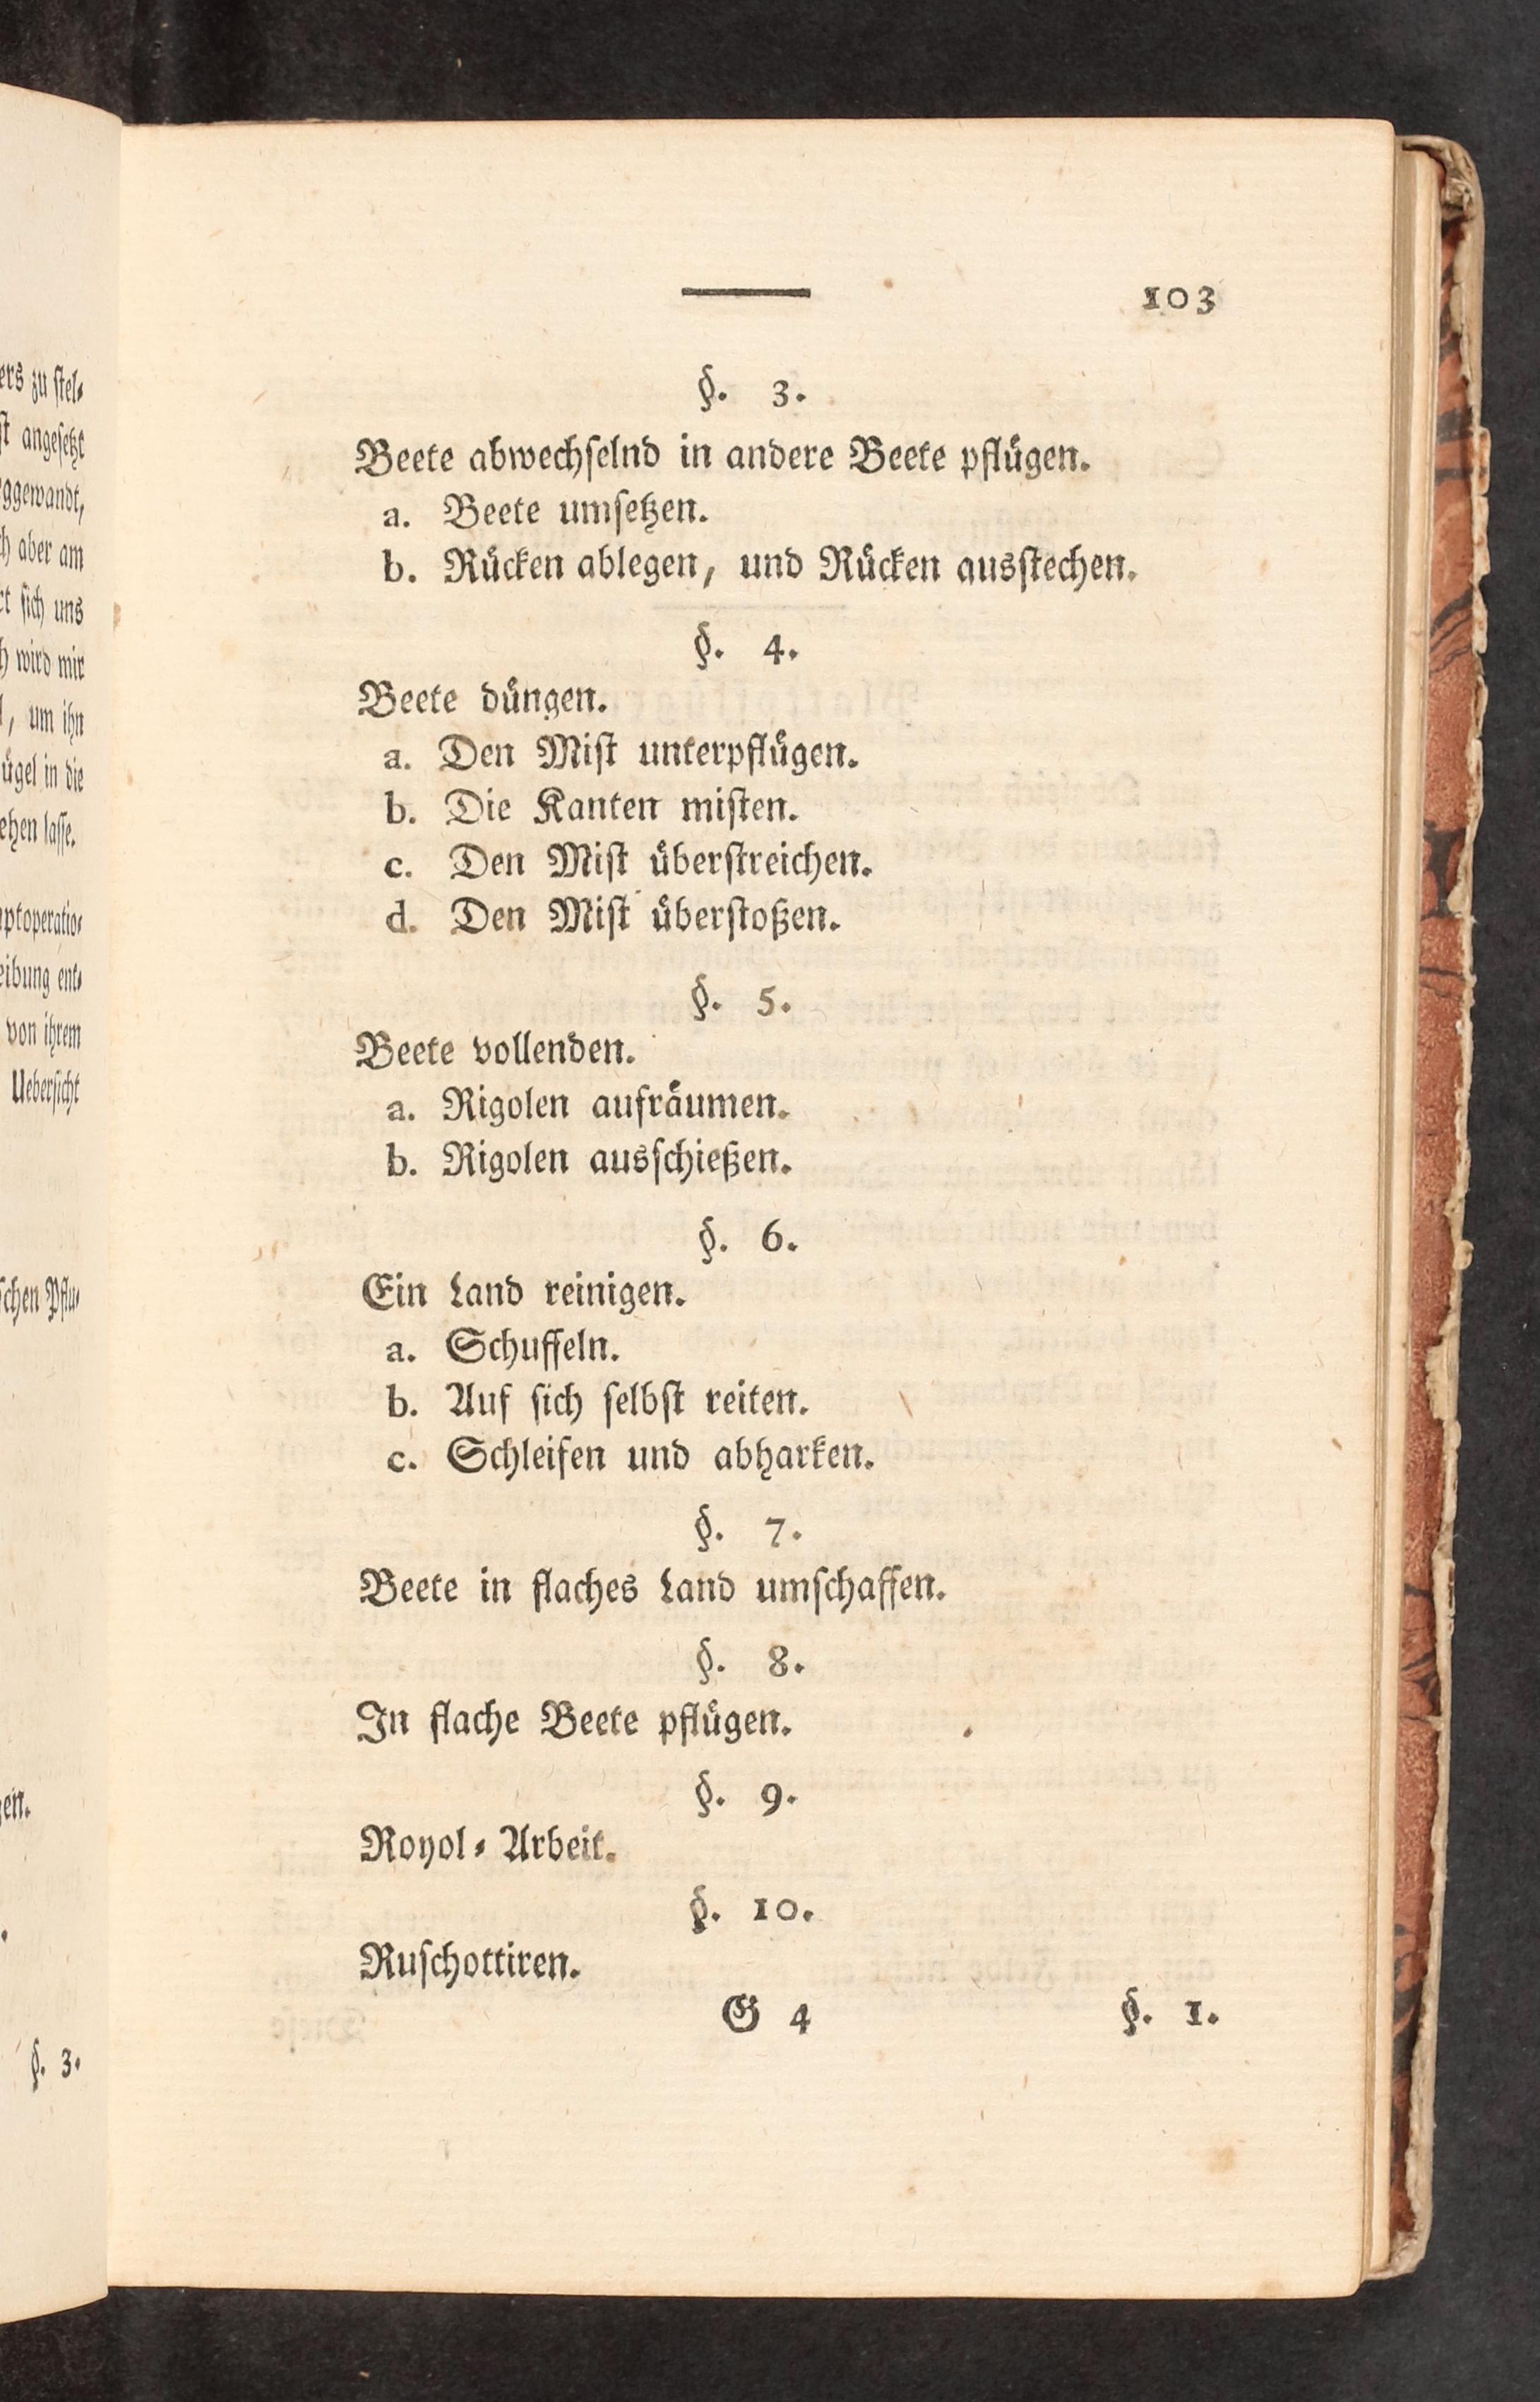 103
§. 3.
Beete abwechselnd in andere Beete pflügen.
a. Beete umsetzen.
b. Rücken ablegen, und Rücken ausstechen.
§. 4.
Beete düngen.
a. Den Mist unterpflügen.
b. Die Kanten misten.
c. Den Mist überstreichen.
d. Den Mist überstoßen.
§. 5.
Beete vollenden.
a. Rigolen aufräumen.
b. Rigolen ausschießen.
§. 6.
Ein Land reinigen.
a. Schuffeln.
b. Auf sich selbst reiten.
c. Schleifen und abharken.
§. 7.
Beete in flaches Land umschaffen.
§. 8.
In flache Beete pflügen.
§. 9.
Royol-Arbeit.
§. 10.
Ruschottiren.
G 4 §. 1.
zu stel-
angesetzt
aber am
sich uns
wird mir
, um ihn
in die
lasse.
ent-
von ihrem
Uebersicht
Pflu-
§. 3.